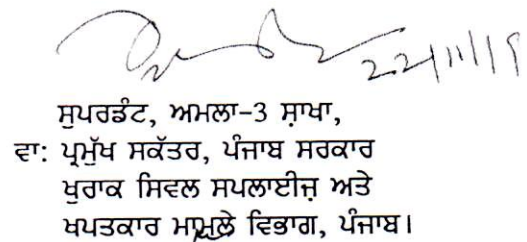 22/11/19
ਸੁਪਰਡੰਟ, ਅਮਲਾ-3 ਸ਼ਾਖਾ,
ਵਾ: ਪ੍ਰਮੁੱਖ ਸਕੱਤਰ, ਪੰਜਾਬ ਸਰਕਾਰ
ਖੁਰਾਕ ਸਿਵਲ ਸਪਲਾਈਜ਼ ਅਤੇ
ਖਪਤਕਾਰ ਮਾਮਲੇ ਵਿਭਾਗ, ਪੰਜਾਬ।